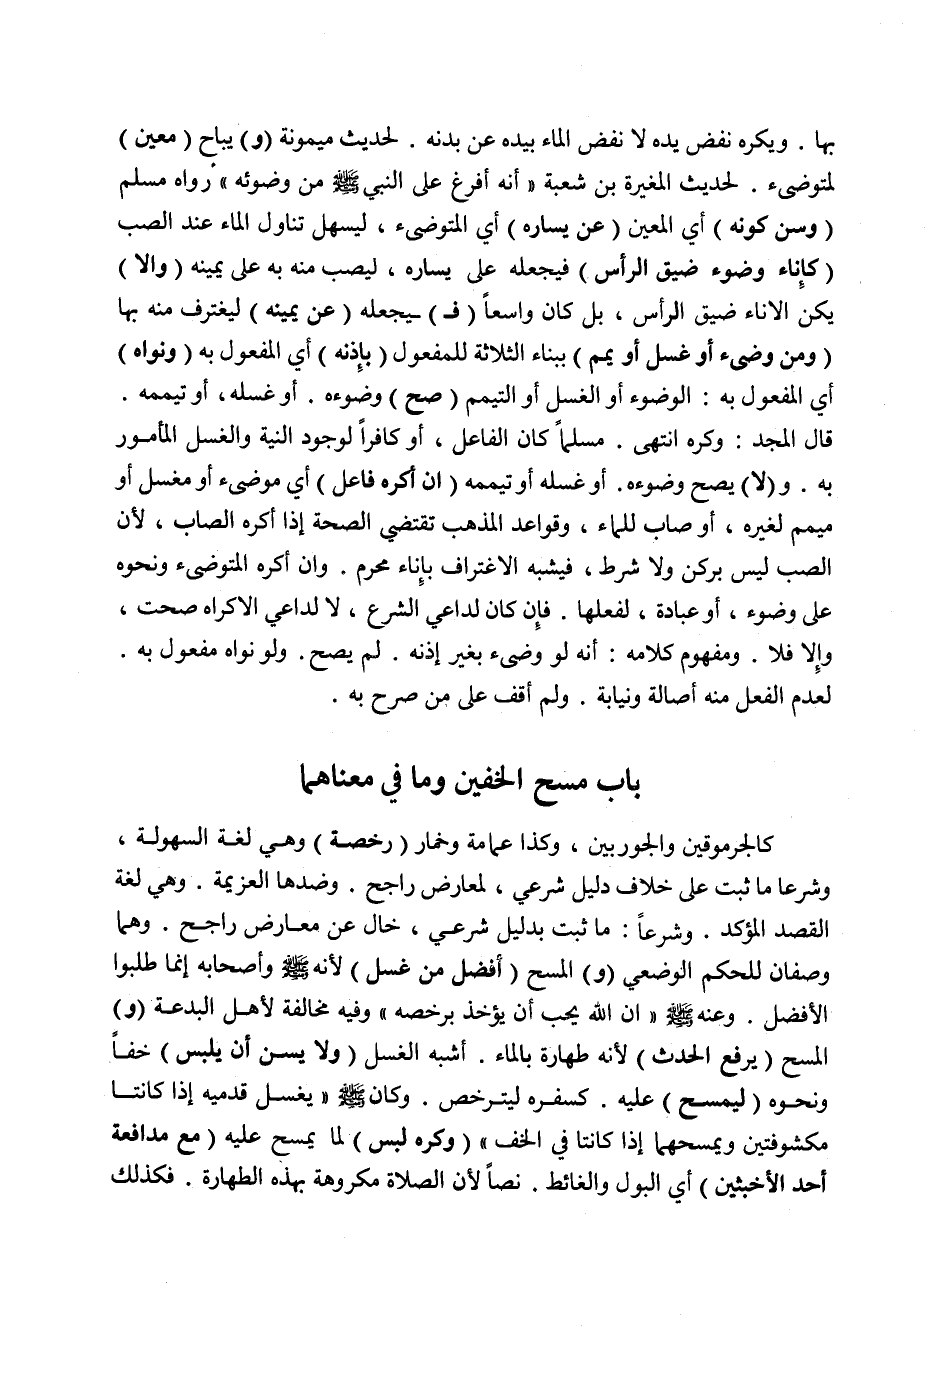 بها . ويكره نفض يده لا نفض الماء بيده عن بدنه . لحديث ميمونة (و) يباح ( معين )
لمتوضىء . لحديث المغيرة بن شعبة « أنه أفرغ على النبي ﷺ من وضوئه » رواه مسلم
( وسن كونه ) أي المعين ( عن يساره ) أي المتوضىء ، ليسهل تناول الماء عند الصب
( كإناء وضوء ضيق الرأس ) فيجعله على يساره ، ليصب منه به على يمينه ( والا )
يكن الاناء ضيق الرأس ، بل كان واسعاً ( فـ ) ـيجعله ( عن يمينه ) ليغترف منه بها
( ومن وضىء أو غسل أو يمم ) ببناء الثلاثة للمفعول ( بإذنه ) أي المفعول به ( ونواه )
أي المفعول به : الوضوء أو الغسل أو التيمم ( صح ) وضوءه . أو غسله ، أو تيممه .
قال المجد : وكره انتهى . مسلماً كان الفاعل ، أو كافراً لوجود النية والغسل المأمور
به . و (لا) يصح وضوءه. أو غسله أو تيممه ( ان أكره فاعل ) أي موضىء أو مغسل أو
ميمم لغيره ، أو صاب للماء ، وقواعد المذهب تقتضي الصحة إذا أكره الصاب ، لأن
الصب ليس بركن ولا شرط ، فيشبه الاغتراف بإناء محرم . وان أكره المتوضىء ونحوه
على وضوء ، أو عبادة ، لفعلها . فإن كان لداعي الشرع ، لا لداعي الاكراه صحت ،
وإلا فلا . ومفهوم كلامه : أنه لو وضىء بغير إذنه . لم يصح. ولو نواه مفعول به .
لعدم الفعل منه أصالة ونيابة . ولم أقف على من صرح به .
باب مسح الخفين وما في معناهما
كالجرموقين والجوربين ، وكذا عمامة وخمار ( رخصة ) وهي لغة السهولة ،
وشرعا ما ثبت على خلاف دليل شرعي ، لمعارض راجح . وضدها العزيمة . وهي لغة
القصد المؤكد . وشرعاً : ما ثبت بدليل شرعي ، خال عن معارض راجح . وهما
وصفان للحكم الوضعي (و) المسح ( أفضل من غسل ) لأنه ﷺ وأصحابه إنما طلبوا
الأفضل . وعنه ﷺ « ان الله يحب أن يؤخذ برخصه » وفيه مخالفة لأهل البدعة (و)
المسح ( يرفع الحدث ) لأنه طهارة بالماء . أشبه الغسل ( ولا يسن أن يلبس ) خفاً
ونحوه ( ليمسح ) عليه . كسفره ليترخص . وكان ﷺ « يغسل قدميه إذا كانتا
مكشوفتين ويمسحهما إذا كانتا في الخف » ( وكره لبس ) لما يمسح عليه ( مع مدافعة
أحد الأخبثين ) أي البول والغائط . نصاً لأن الصلاة مكروهة بهذه الطهارة . فكذلك